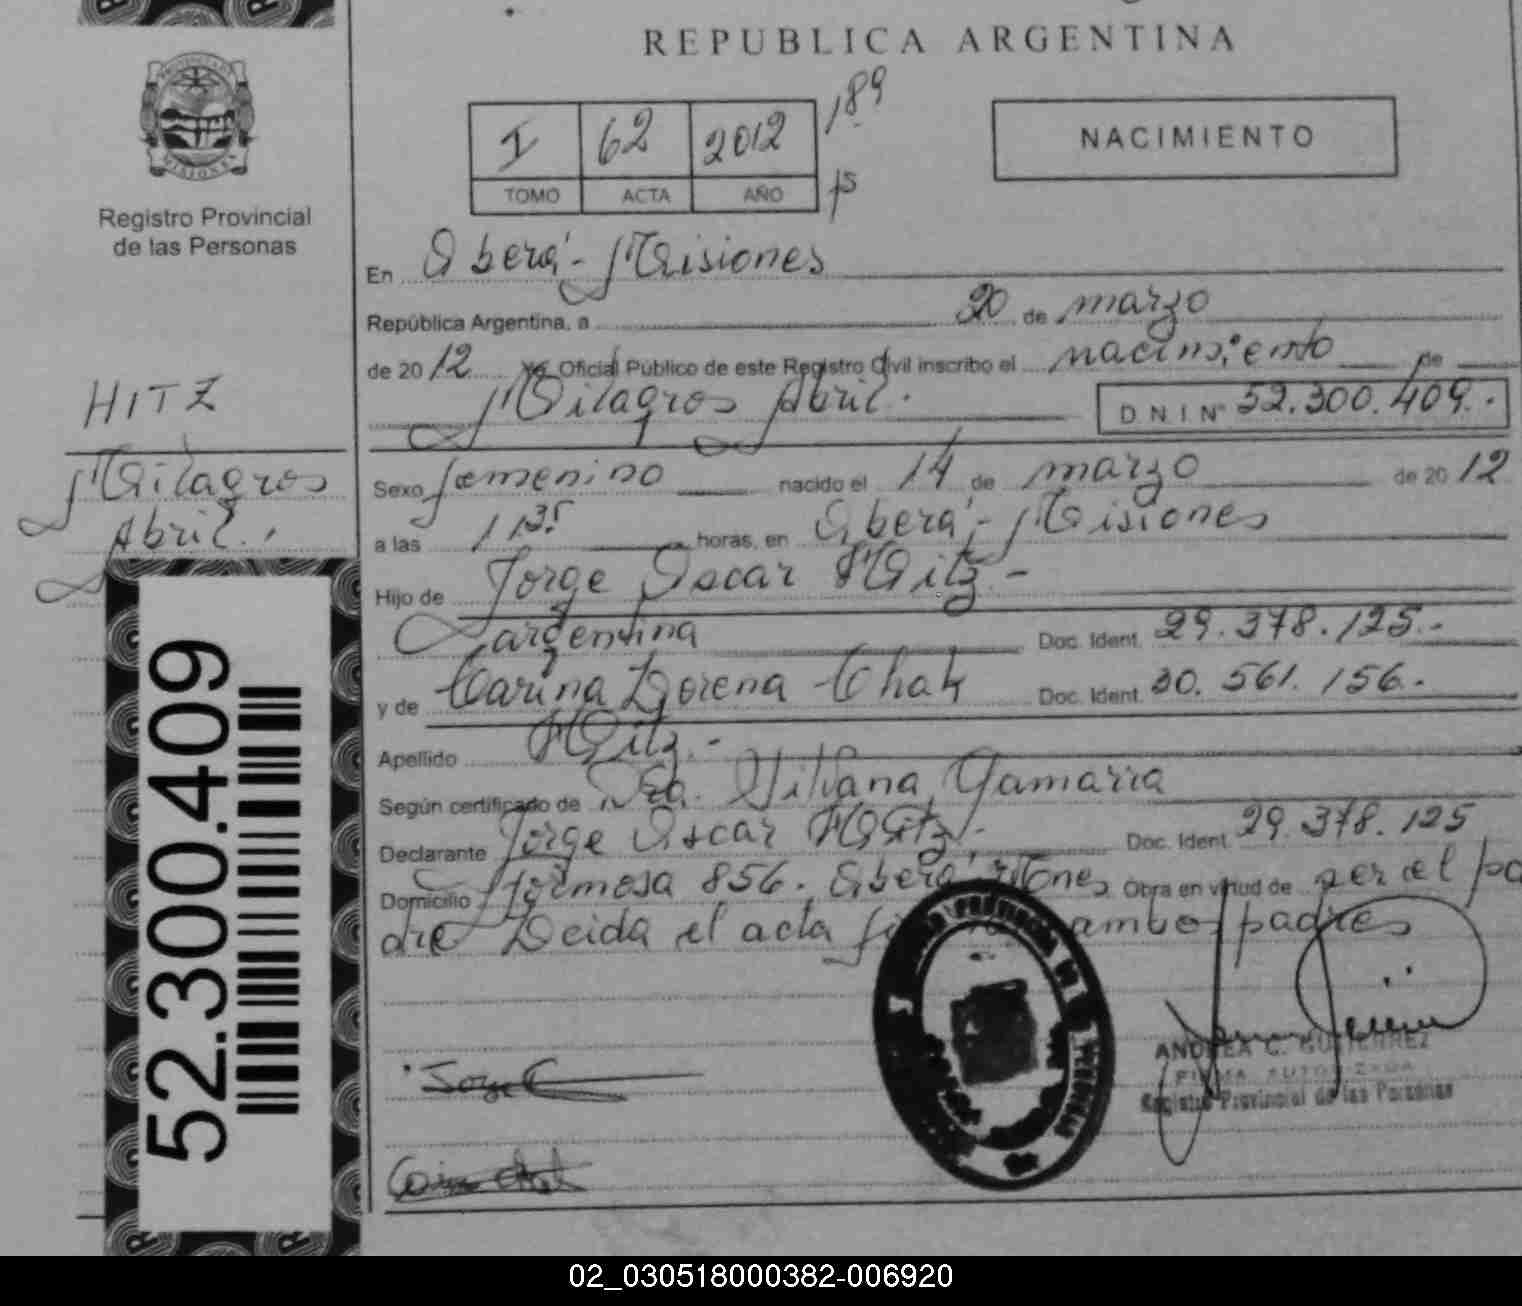 REPUBLICA ARGENTINA
I 62 2012 189
TOMO ACTA AÑO
NACIMIENTO
PROVINCIA DE MISIONES
Registro Provincial
de las Personas
En Oberá - Misiones
República Argentina, a 20 de marzo
de 2012 Yo, Oficial Público de este Registro Civil inscribo el nacimiento de
Milagros Abril. D N I Nº 52.300.409.-
HITZ
Milagros
Abril.
Sexo femenino nacido el 14 de marzo de 2012
a las 11,35 horas, en Oberá - Misiones
Hijo de Jorge Oscar Hitz.-
argentina Doc. Ident. 29.378.125.-
y de Carina Lorena Chak Doc. Ident. 30.561.156.-
Apellido Hitz.-
Según certificado de Dra. Silvana Gamarra
Declarante Jorge Oscar Hitz.- Doc. Ident. 29.378.125
Domicilio Formosa 856. Oberá Mones Obra en virtud de ser el pa
dre Leida el acta ambos padres
52.300.409
Jorge
ANDREA C. GUTIERREZ
FIRMA AUTORIZADA
Registro Provincial de las Personas
02_030518000382-006920